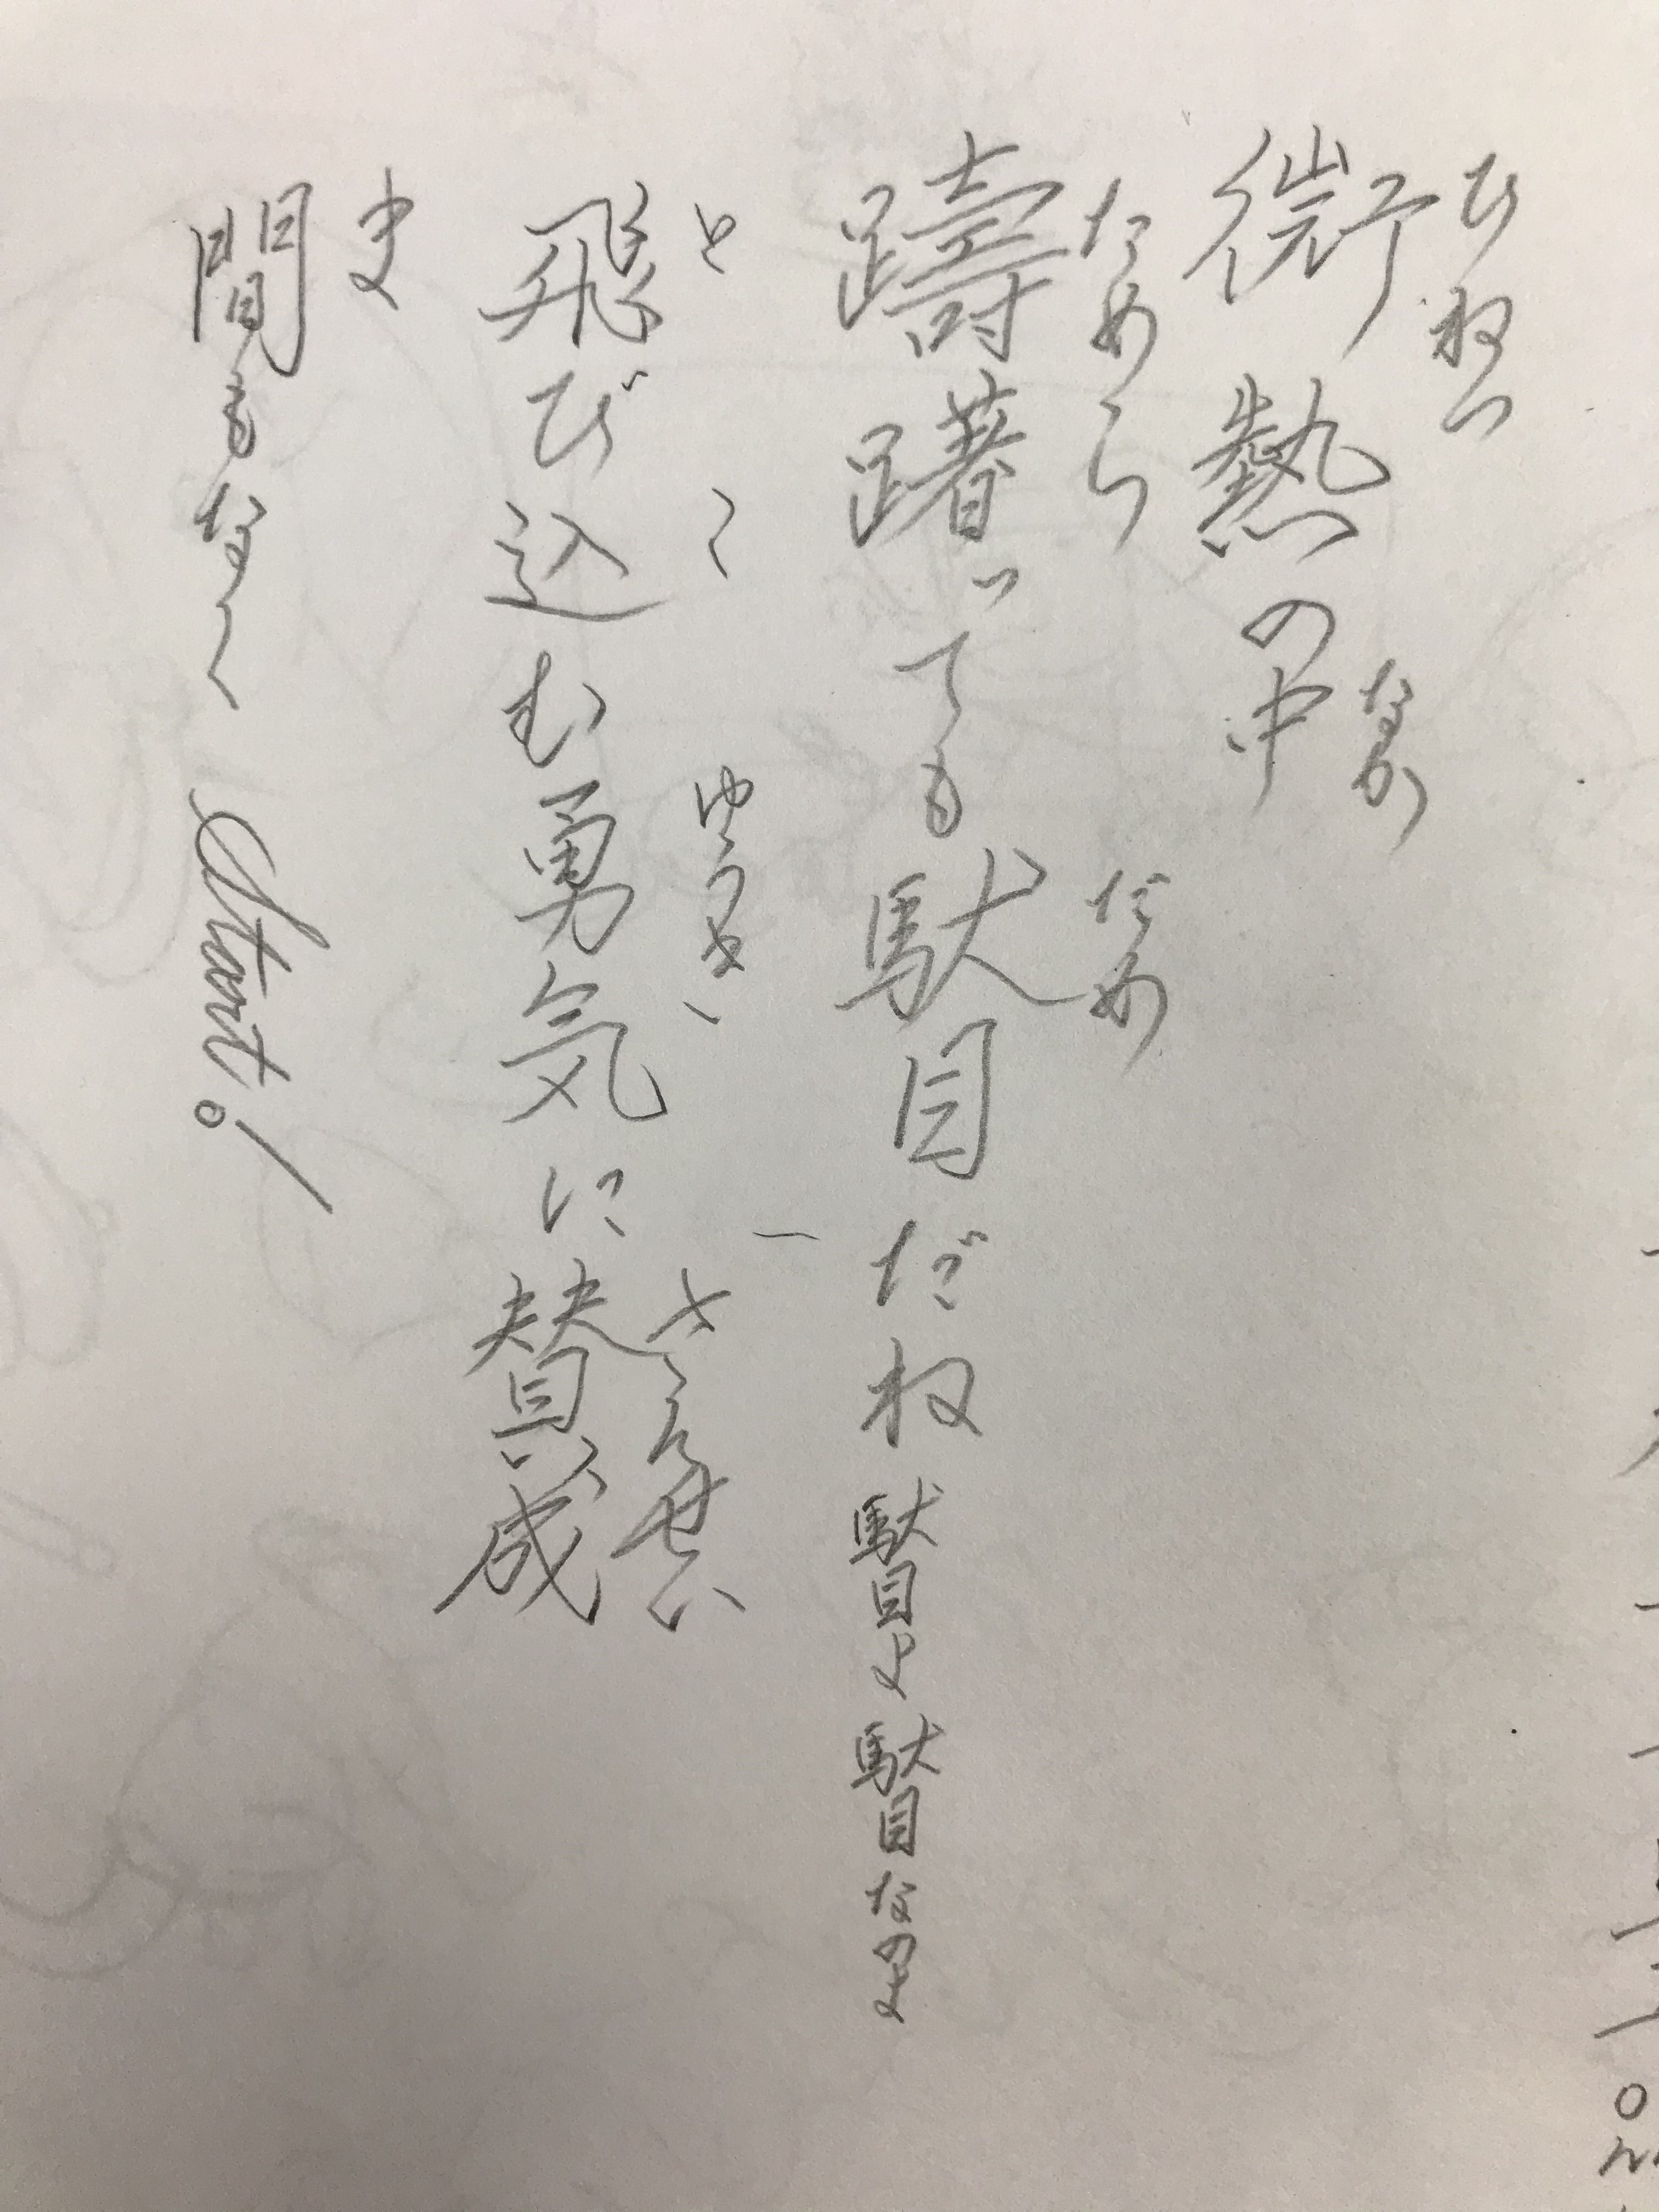 びねつ
微熱の中
なか
ためら
躊躇っても駄目だね 駄目よ駄目なのよ
だめ
と
こ
ゆうき
さんせい
飛び込む勇気に賛成
ま
間もなく Start!